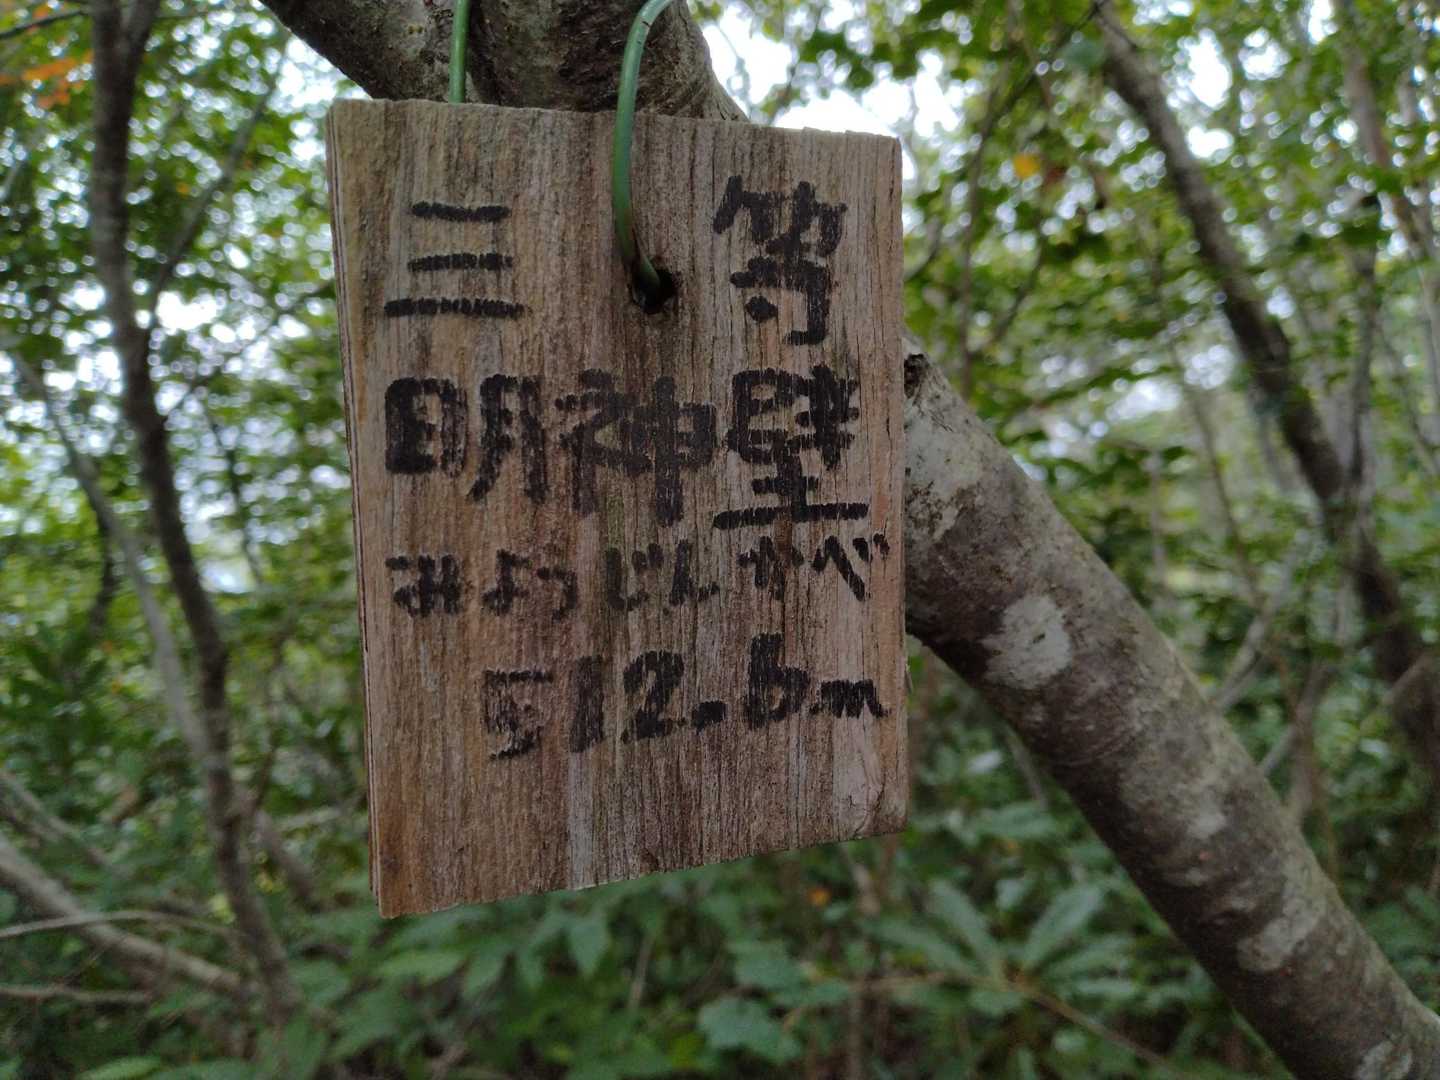 三等
明神壁
みょうじんかべ
512.6m